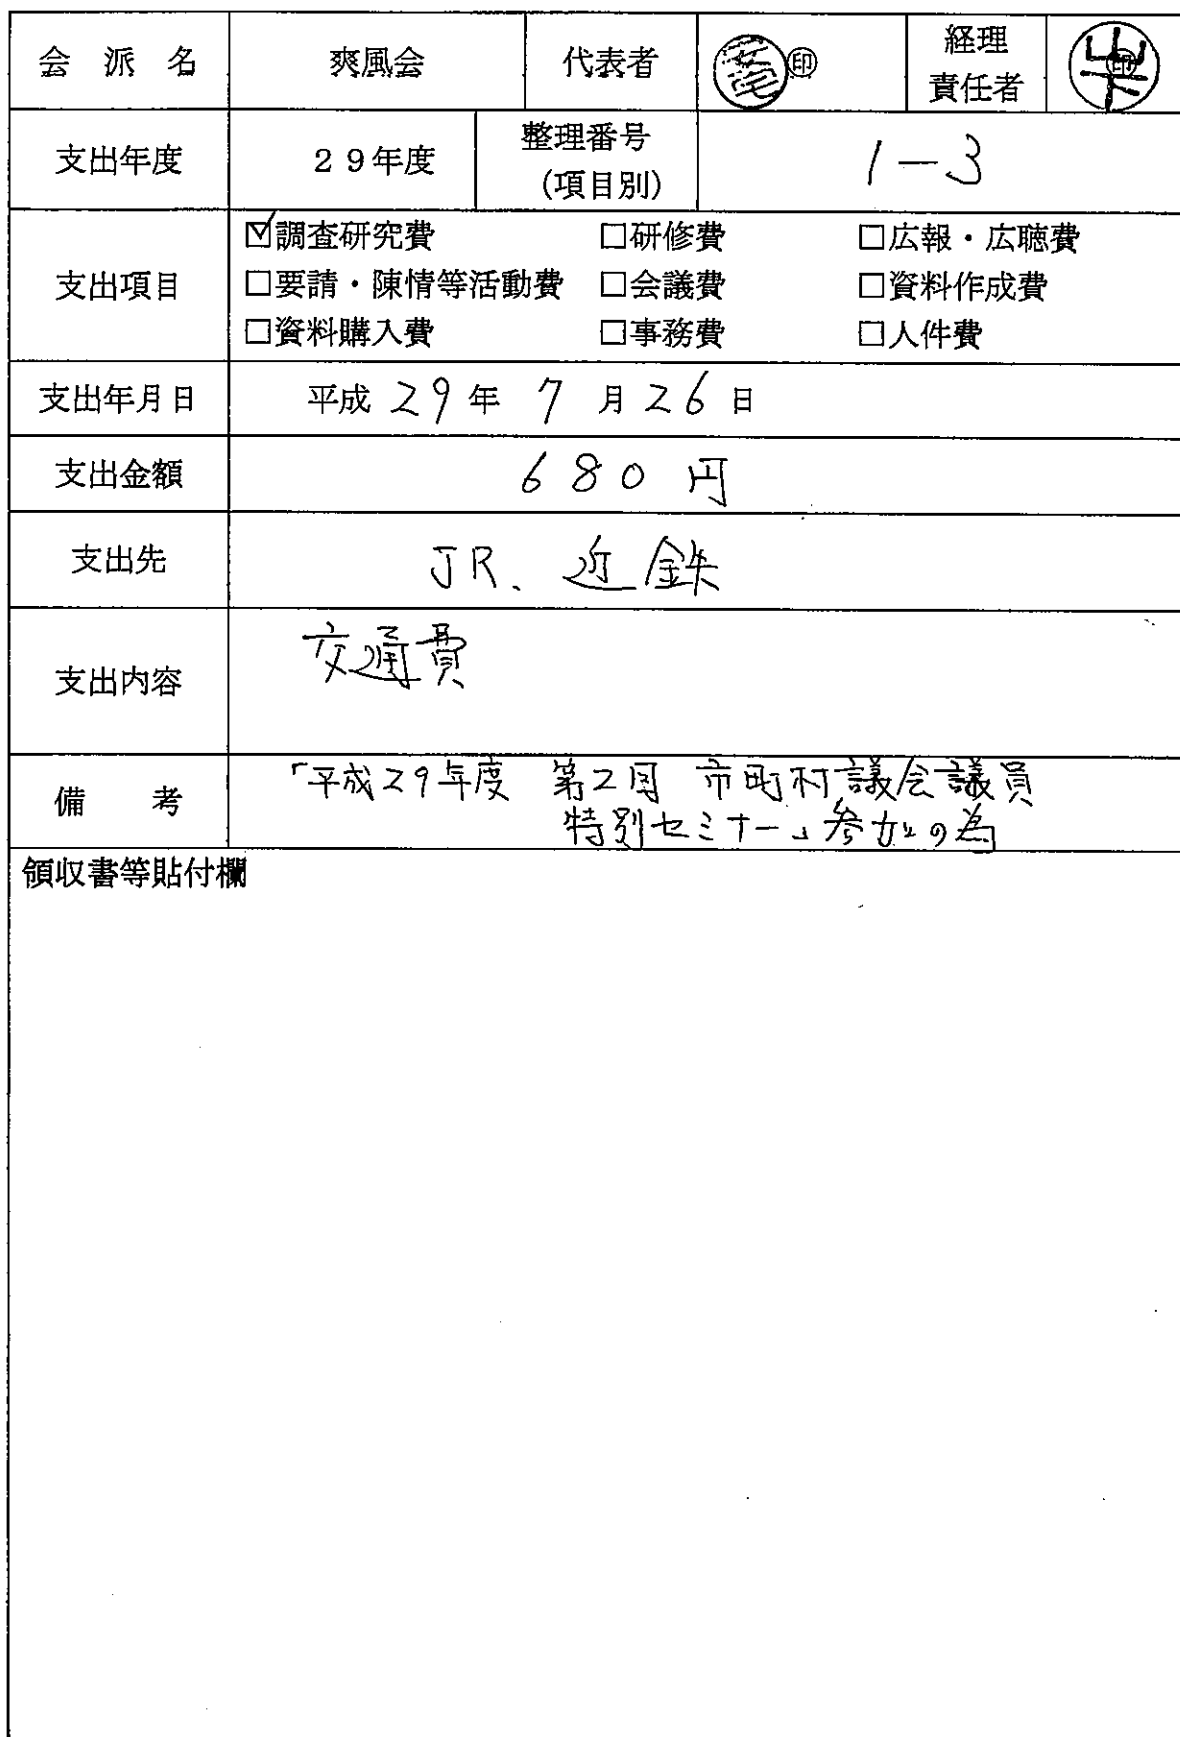 会派名 爽風会 代表者 ㊞ 経理責任者 ㊞
支出年度 29年度 整理番号(項目別) 1-3
支出項目
☑調査研究費 □研修費 □広報・広聴費
□要請・陳情等活動費 □会議費 □資料作成費
□資料購入費 □事務費 □人件費
支出年月日 平成29年7月26日
支出金額 680円
支出先 JR、近鉄
支出内容 交通費
備考 「平成29年度 第2回 市町村議会議員
特別セミナー」参加の為
領収書等貼付欄